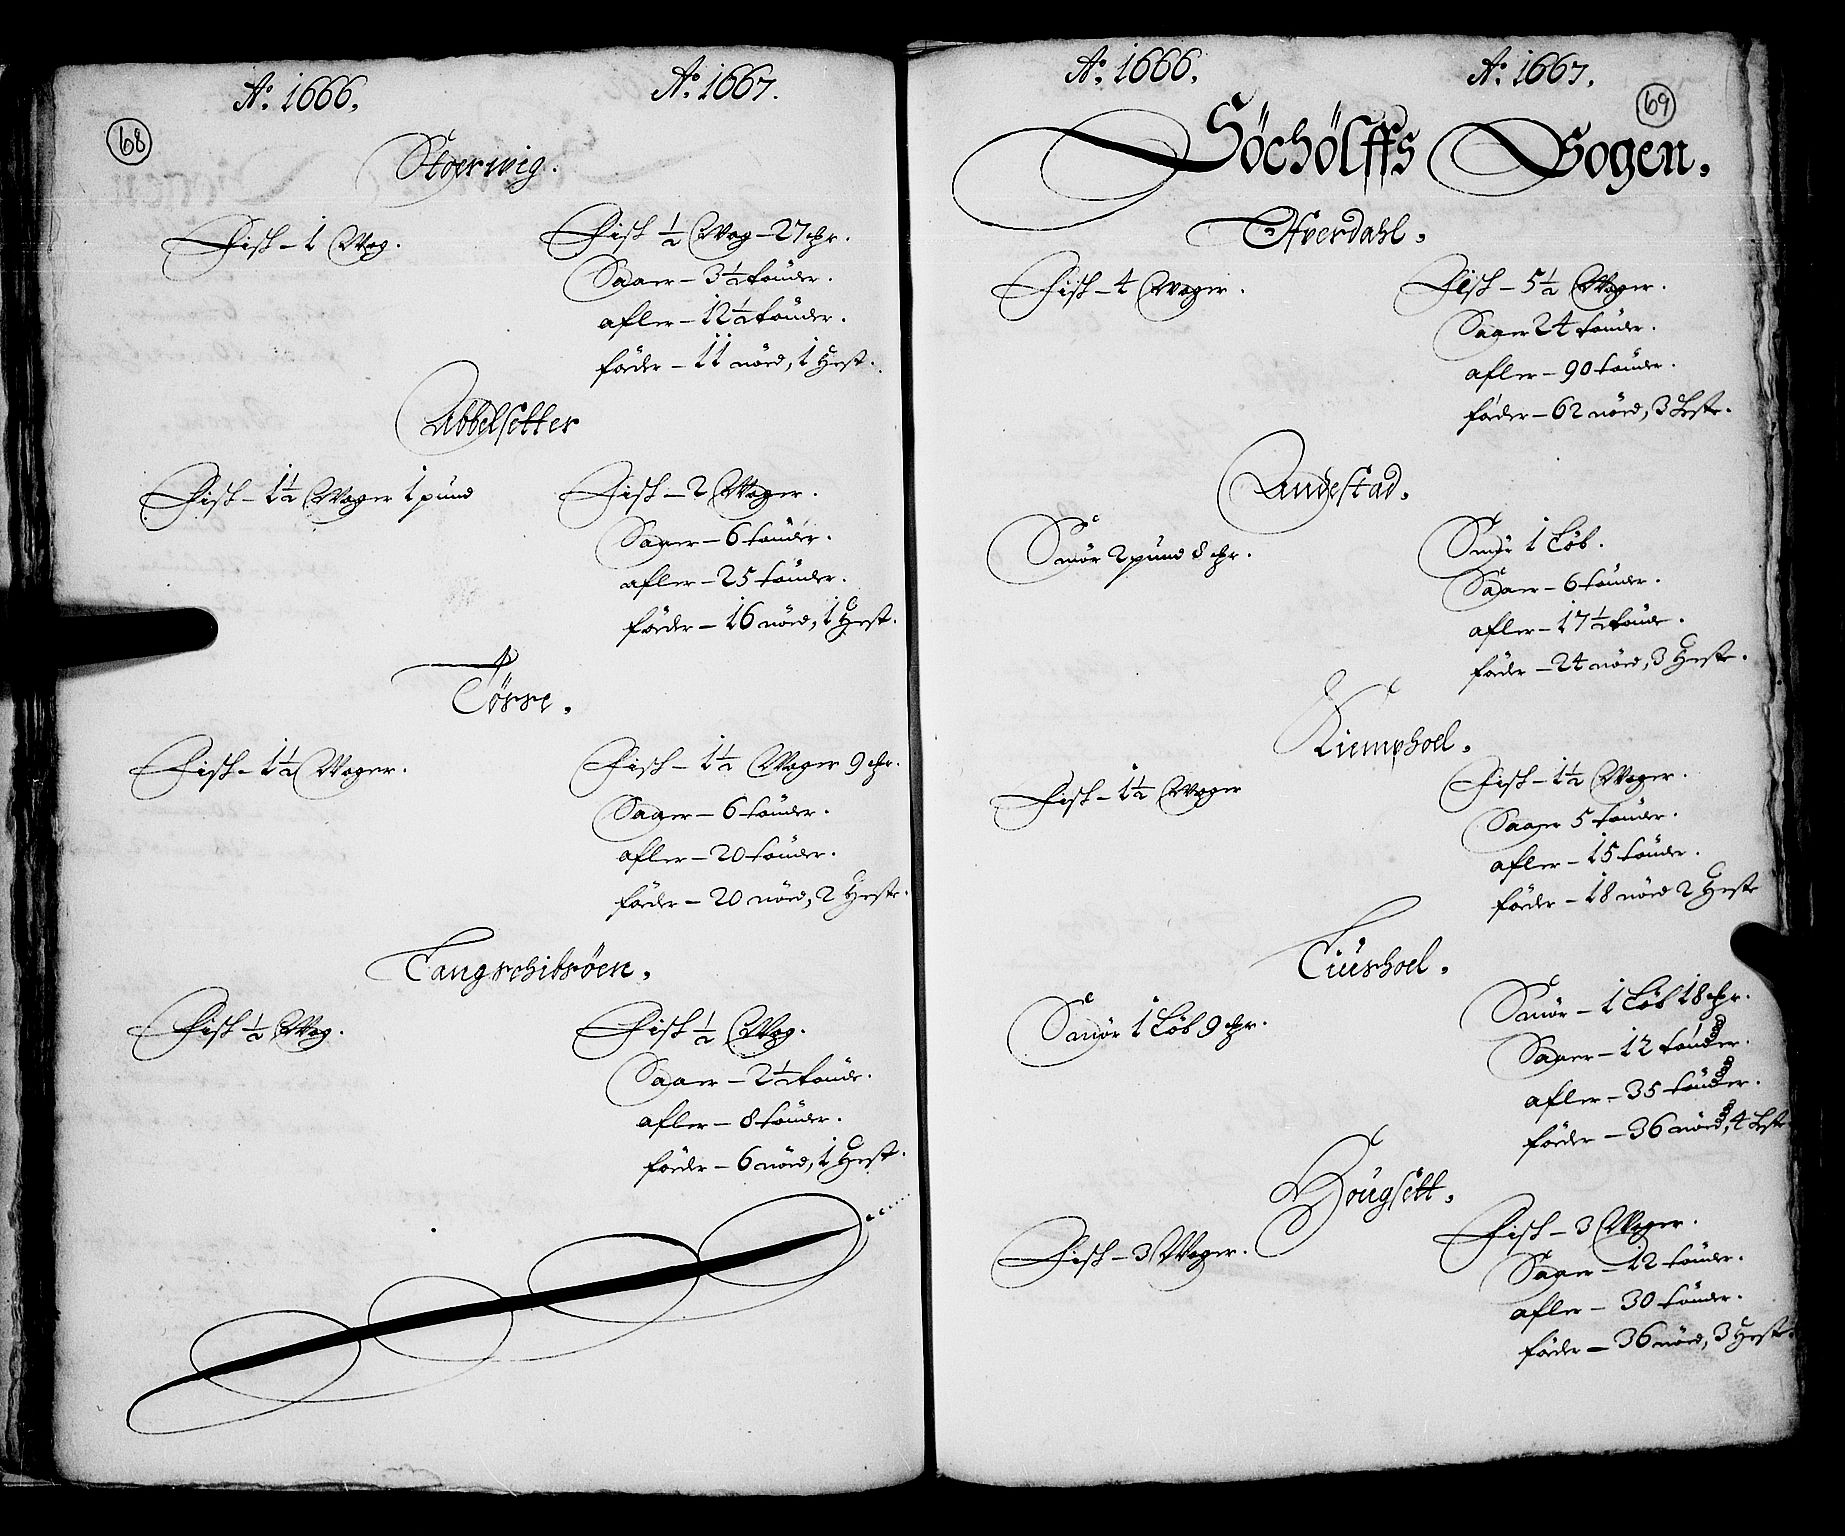 Aº. 1666.
Aº. 1667.
68
Stoerwig.
Fisk – 1 Wog.
Fisk ½ Wog – 27 chr.
Saaer – 3½ tönder.
afler – 12½ tönder.
föder – 11 nöed, 1 Hest.
Abbelsetter
Fisk – 1½ Woger 1 pund
Fisk – 2 Woger.
Saaer – 6 tönder.
afler – 25 tönder.
föder – 16 nöed, 1 Hest.
Törre.
Fisk – 1½ Woger.
Fisk – 1½ Woger 9 chr.
Saaer – 6 tönder.
afler – 20 tönder.
föder – 20 nöed, 2 Heste.
Tangschibröen.
Fisk ½ Wog.
Fisk ½ Wog.
Saaer – 2½ tönde.
afler – 8 tönder.
föder – 6 nöed, 1 Hest.
Aº. 1666.
Aº. 1667.
69
Söchölffs Bogen.
Ofverdahl.
Fisk – 4 Woger.
Fisk – 5½ Woger.
Saaer 24 tönder.
afler – 90 tönder.
föder – 62 nöed, 3 Heste.
Andestad.
Smör 2 pund 8 chr.
Smör 1 Löb.
Saaer – 6 tönder.
afler – 17½ tönde.
föder – 24 nöed, 3 Heste.
Kiemphoel.
Fisk – 1½ Woger
Fisk – 1½ Woger.
Saaer 5 tönder.
afler – 15 tönder.
föder – 18 nöed 2 Heste
Tiüshoel.
Smör 1 Löb 9 chr.
Smör – 1 Löb 18 chr.
Saaer – 12 tönder.
afler – 35 tönder.
föder – 36 nöed, 4 Heste
Hougsett.
Fisk – 3 Woger.
Fisk – 3 Woger.
Saaer – 12 tönder.
afler – 30 tönder.
föder – 36 nöed, 3 Heste.